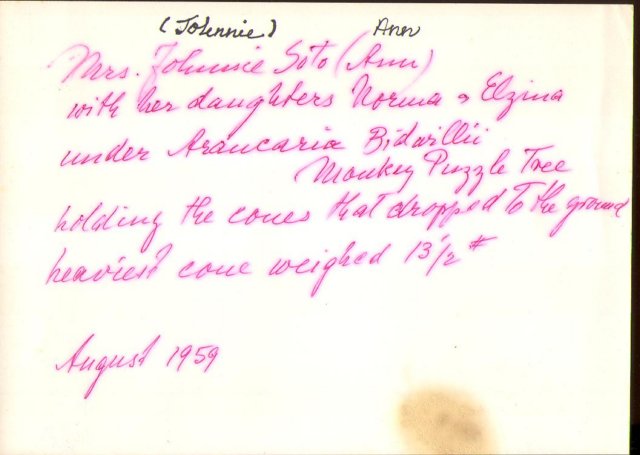 (Johnnie) Ann
Mrs. Johnnie Soto (Ann)
with her daughters Norma & Elzina
under Araucaria Bidwillii
Monkey Puzzle Tree
holding the cones that dropped to the ground
heaviest cone weighed 13 1/2 #
August 1959